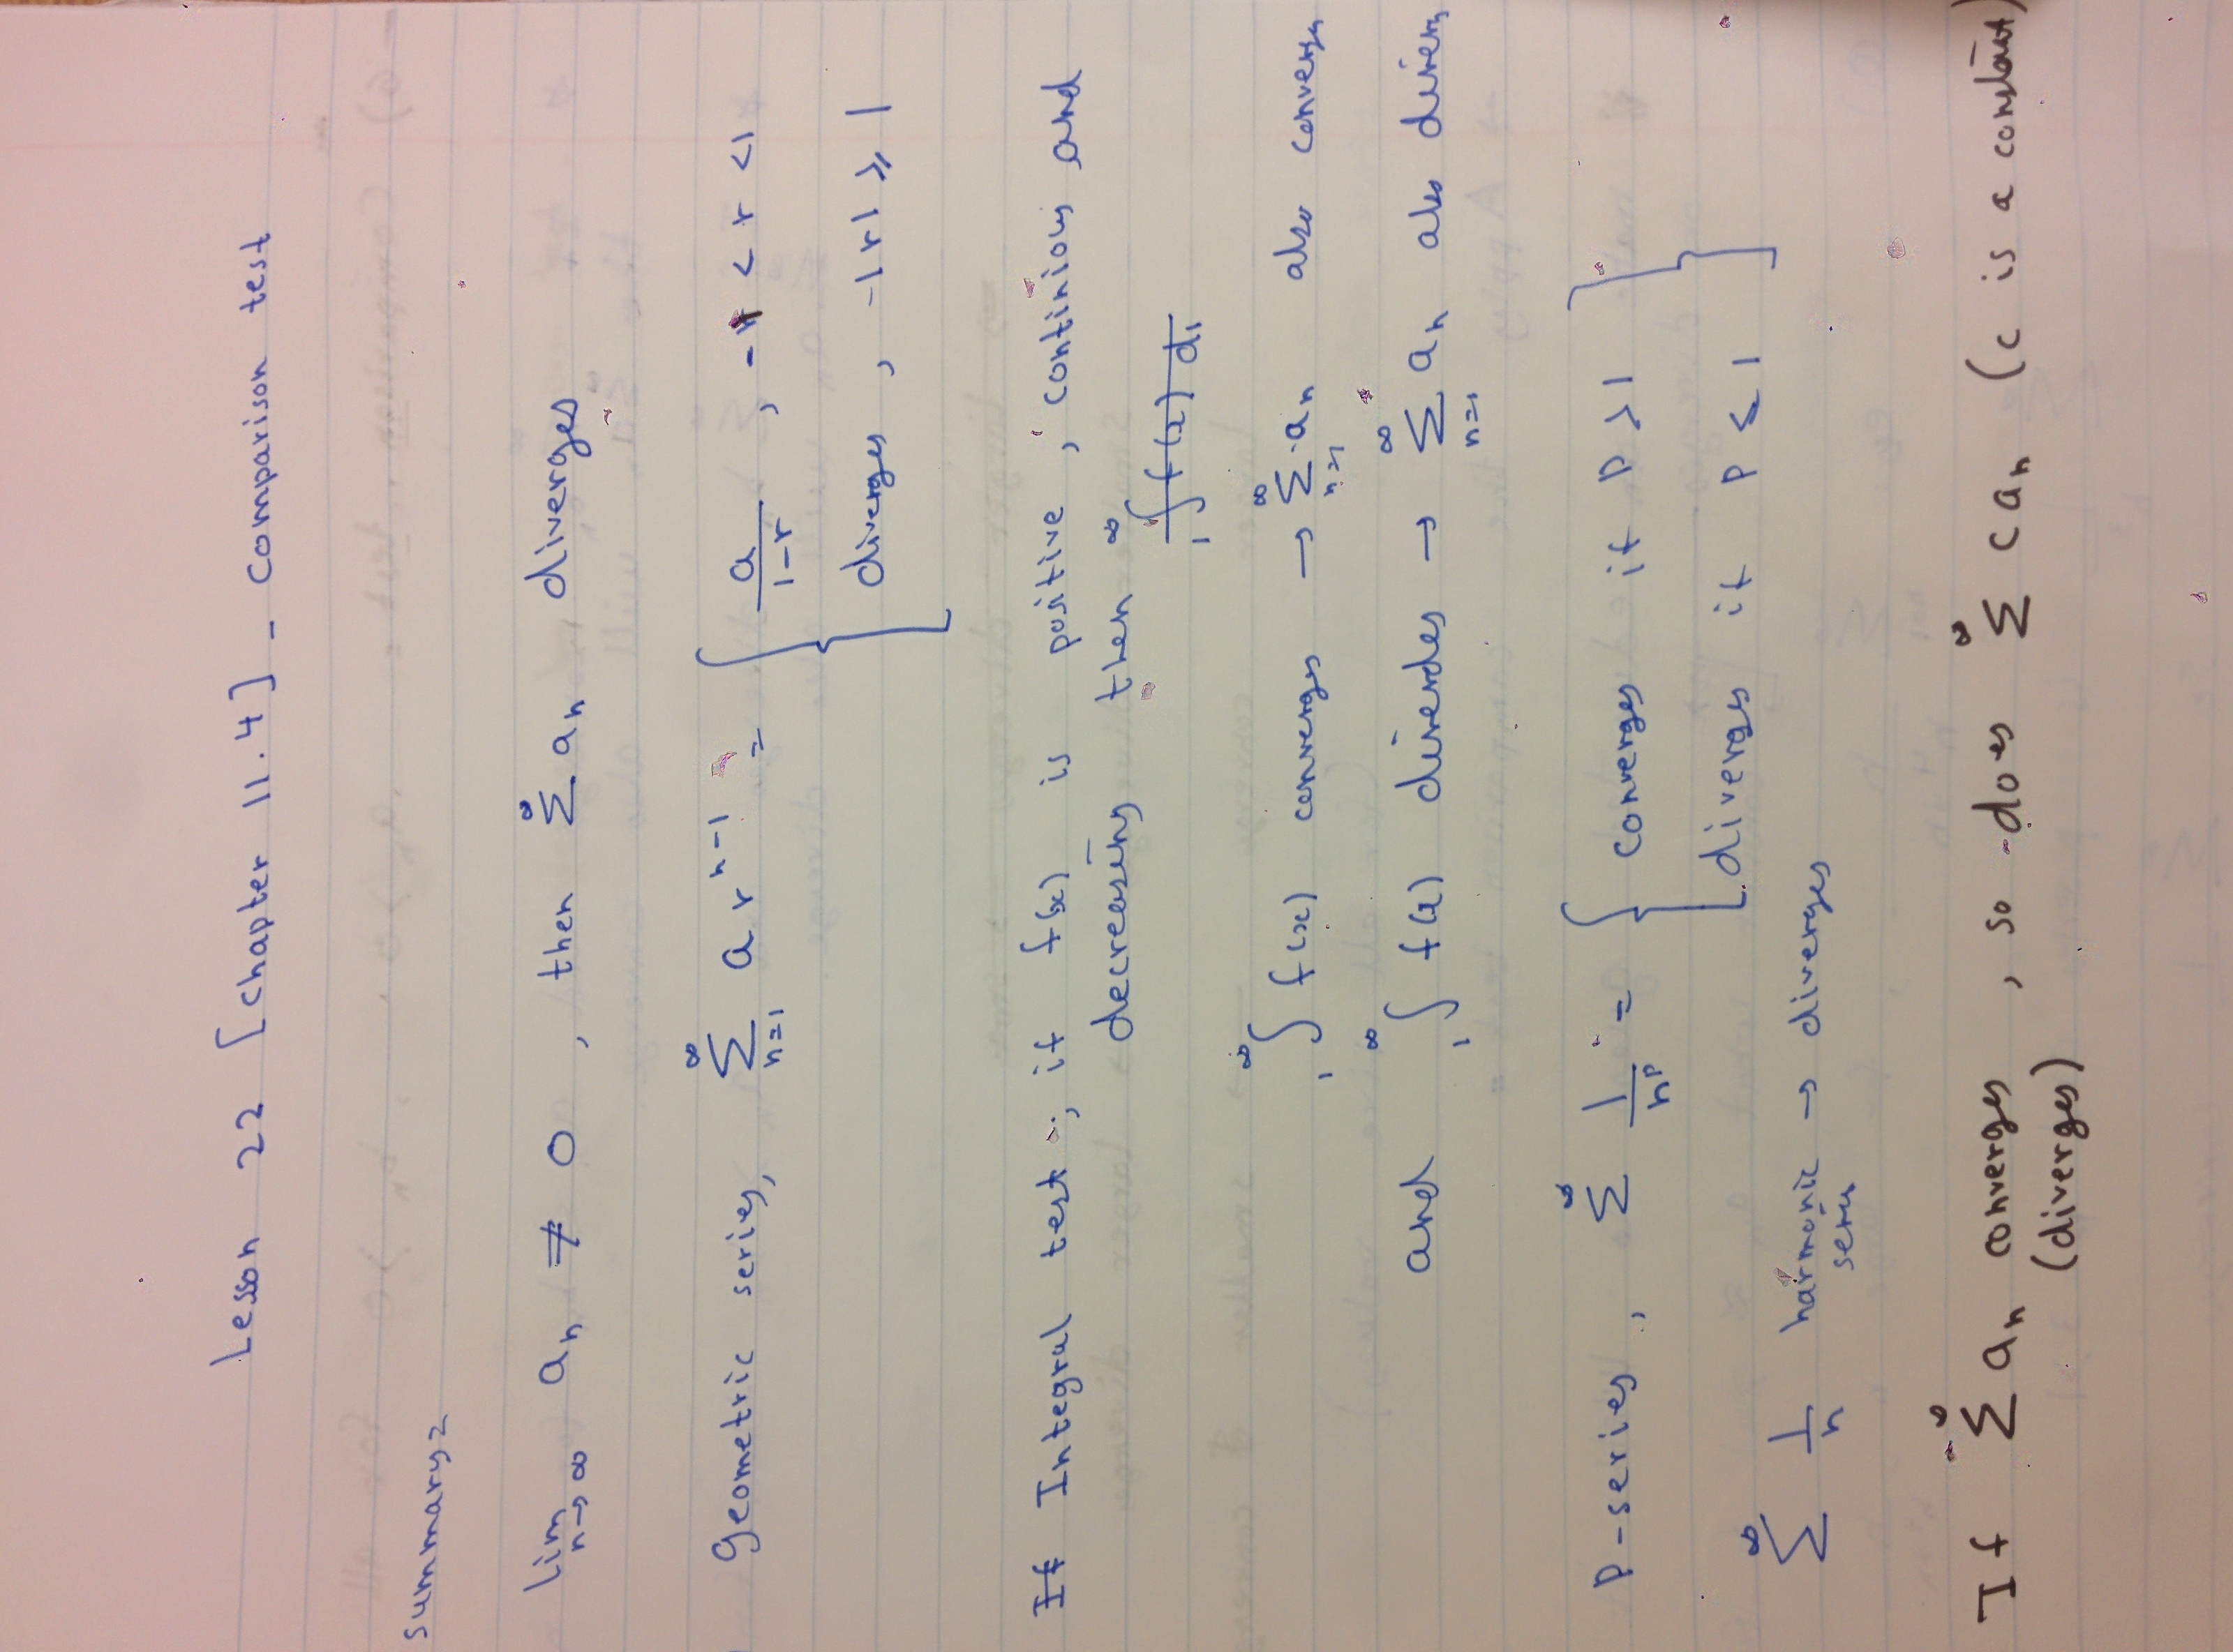 Lesson 22 [chapter 11.4] - Comparison test
summary:
lim n→∞ aₙ ≠ 0 , then ∑^∞ aₙ diverges
Geometric series, ∑_{n=1}^∞ a r^{n-1} = { a/(1-r) , -1 < r < 1
diverges , |r| ⩾ 1
Integral test : if f(x) is positive , continious and
decreasing then
∫_1^∞ f(x) converges → ∑_{n=1}^∞ aₙ also converges
and ∫_1^∞ f(x) diverdes → ∑_{n=1}^∞ aₙ also diverges
P-series , ∑^∞ 1/n^p = { converges if p > 1 }
diverges if p ⩽ 1
∑^∞ 1/n harmonic series → diverges
If ∑^∞ aₙ converges , so does ∑^∞ c aₙ (c is a constant)
(diverges)